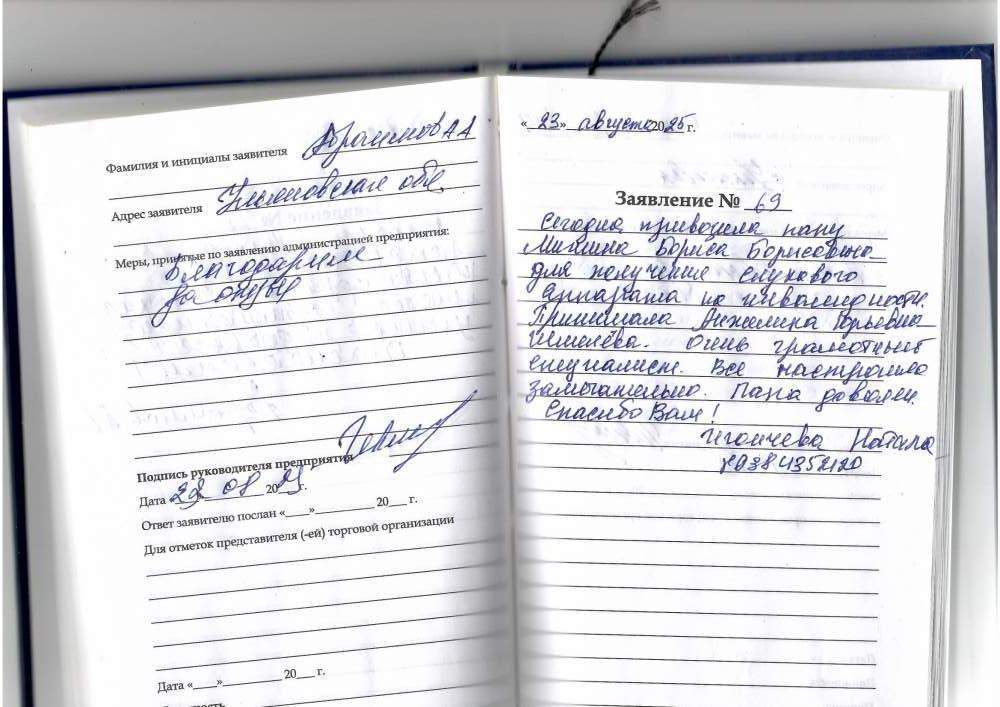 Фамилия и инициалы заявителя Абрамов А А
Адрес заявителя Ульяновская обл.
Меры, принятые по заявлению администрацией предприятия:
Благодарим
за отзыв
Подпись руководителя предприятия
Дата 29 08 2025 г.
Ответ заявителю послан «____»__________ 20___ г.
Для отметок представителя (-ей) торговой организации
Дата «____»__________ 20___ г.
« 23» августа 2025 г.
Заявление № 69
Сегодня приводила папу
Бориса Борисовича
для получение слухового
аппарата по инвалидности.
Принимала Анжелика Юрьевна
Очень грамотный
специалист. Все настроила
замечательно. Папа доволен.
Спасибо Вам!
Наталья